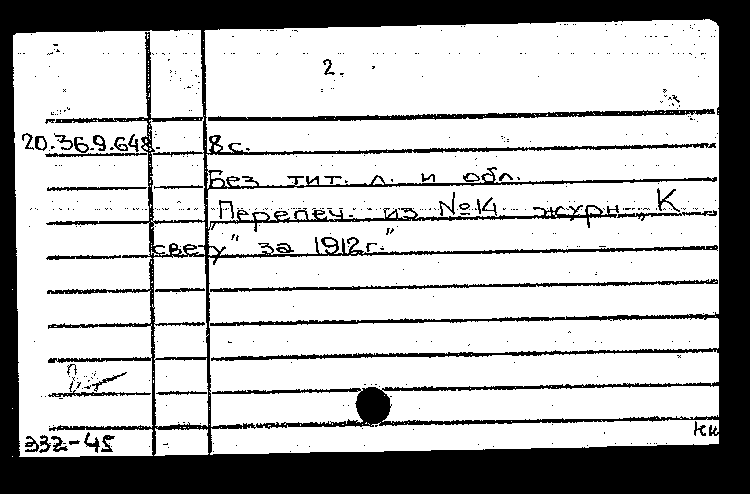 2.
20.369.648. 8 с.
Без тит. л. и обл.
„Перепеч. из №14 журн. „К
свету" за 1912г."
332-45